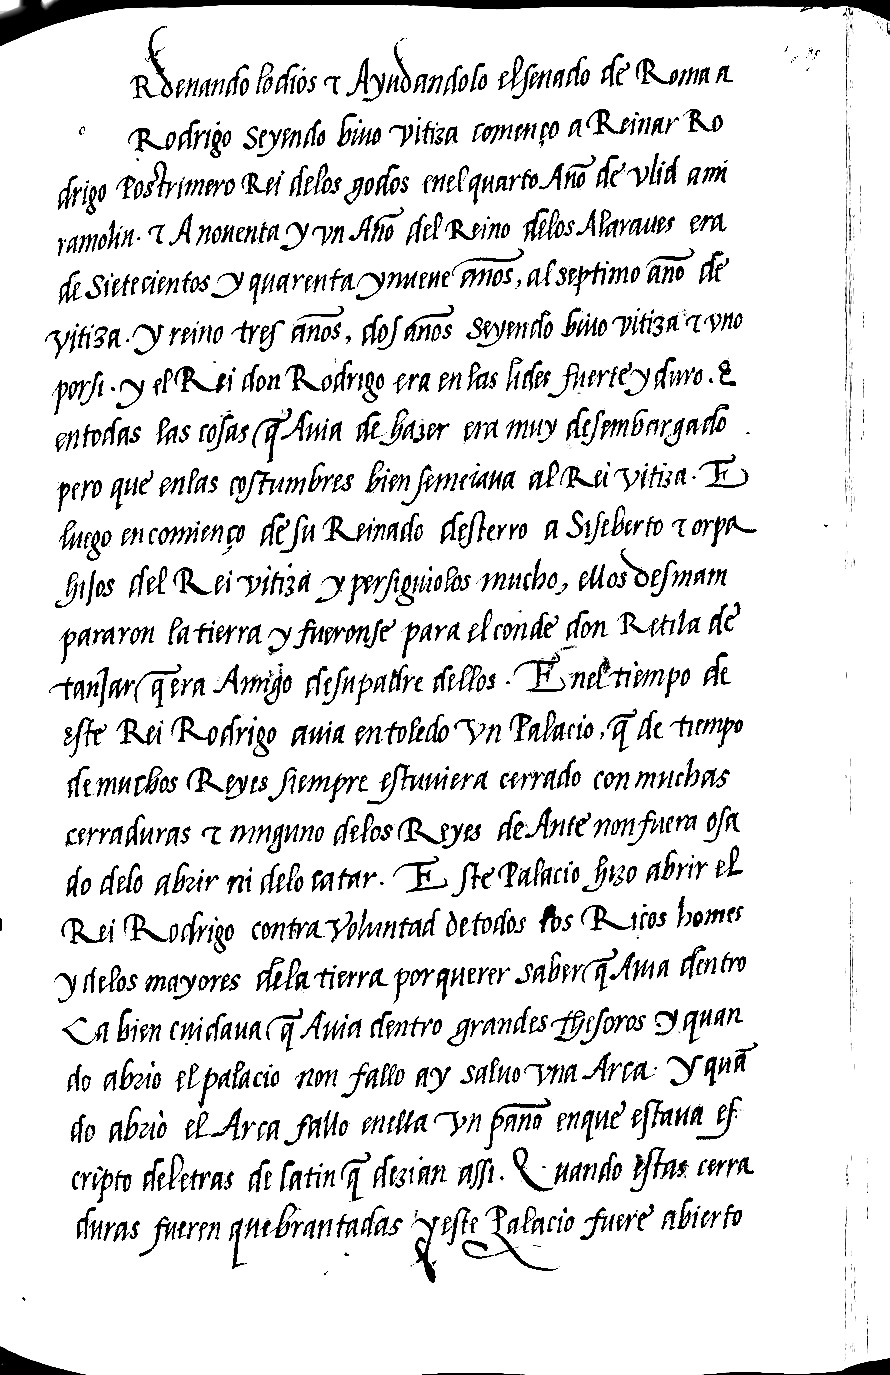 Rdenando lo dios τ Ayudandolo el senado de Roma a
Rodrigo Seyendo biuo vitiza començo a Reinar Ro
drigo Postrimero Rei delos godos enel quarto Año de vlid ami
ramolin. τ A nouenta y vn Año del Reino delos Alaraues era
de Sietecientos y quarenta y nueue años, al septimo año de
vitiza. y reino tres años, dos años Seyendo biuo vitiza τ vno
por si. y el Rei don Rodrigo era en las lides fuerte y duro. E
en todas las cosas q̃ Auia de hazer era muy desembargado
pero que enlas costumbres bien semeiaua al Rei vitiza. E
luego en comienço de su Reinado desterro a Siseberto τ orpa
hijos del Rei vitiza y persiguiolos mucho, ellos desmam
pararon la tierra y fueronse para el conde don Retila de
tanjar q̃ era Amigo de su padre dellos. Enel tiempo de
este Rei Rodrigo auia en toledo vn Palacio, q̃ de tiempo
de muchos Reyes siempre estuuiera cerrado con muchas
cerraduras τ ninguno delos Reyes de Ante non fuera osa
do delo abrir ni delo catar. Este Palacio hizo abrir el
Rei Rodrigo contra voluntad de todos los Ricos homes
y delos mayores dela tierra por querer saber q̃ Auia dentro
Ca bien cuidaua q̃ Auia dentro grandes thesoros y quan
do abrio el palacio non fallo ay saluo vna Arca. y quã
do abrio el Arca fallo enella vn paño enque estaua es
cripto deletras de latin q̃ dezian assi. Quando estas cerra
duras fueren quebrantadas y este Palacio fuere abierto